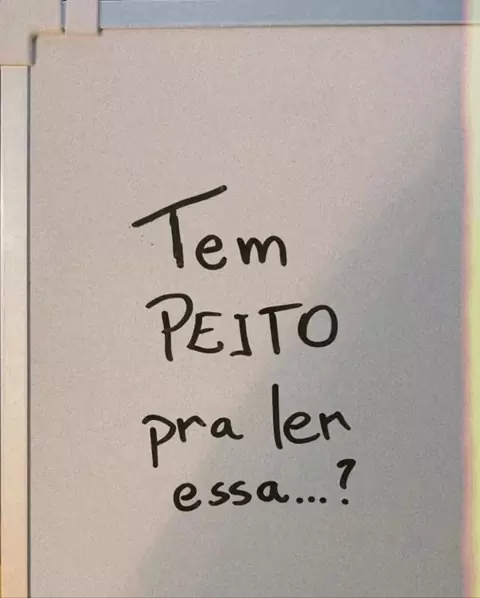 Tem
PEITO
pra ler
essa...?